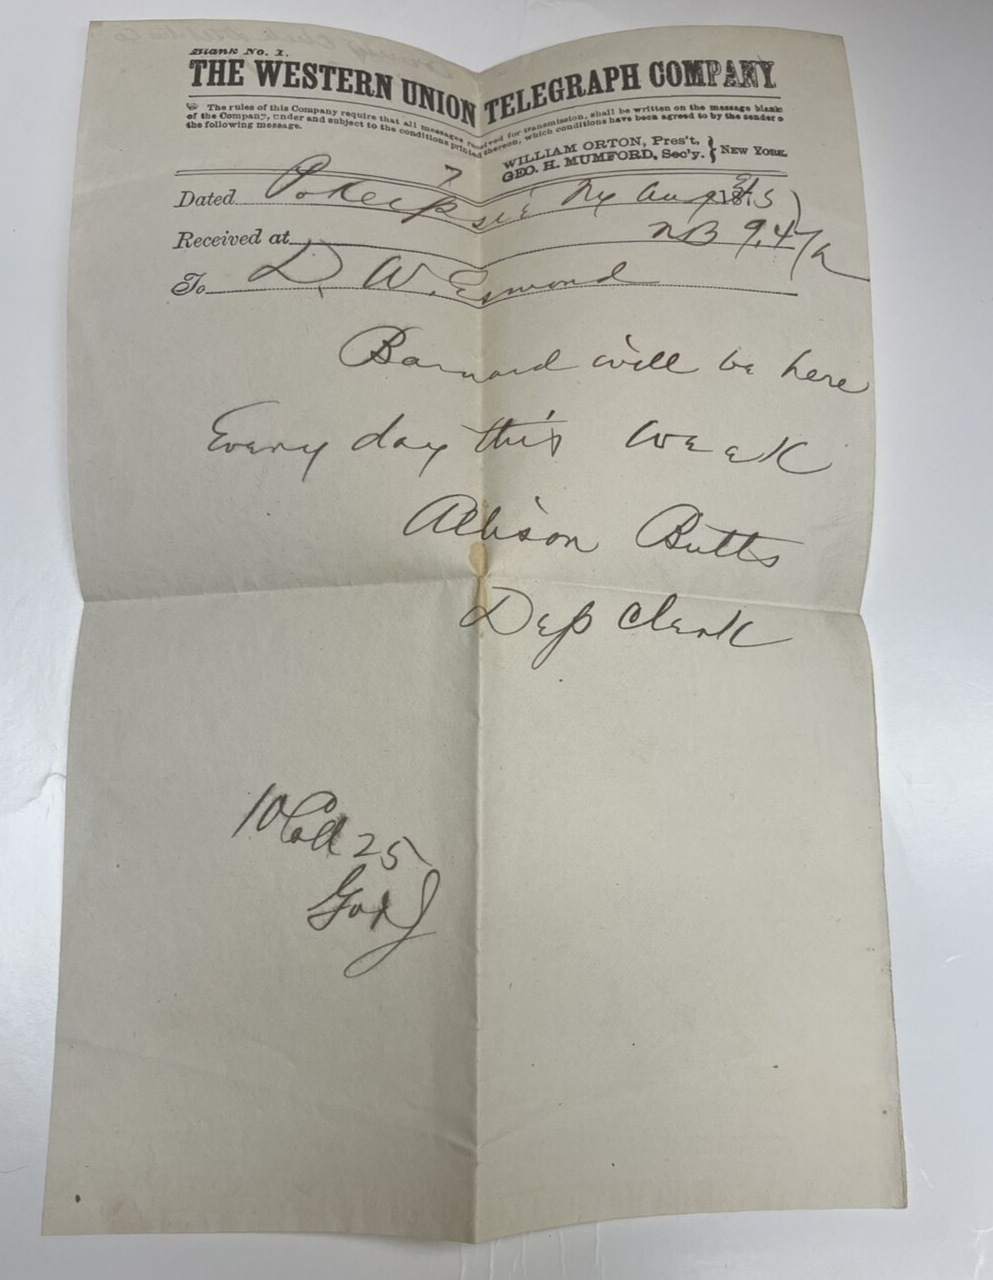 Blank No. 1.
THE WESTERN UNION TELEGRAPH COMPANY
The rules of this Company require that all messages received for transmission, shall be written on the message blanks
of the Company, under and subject to the conditions printed thereon, which conditions have been agreed to by the sender o
the following message.
WILLIAM ORTON, Pres't,
GEO. H. MUMFORD, Sec'y. } NEW YORK.
7
Dated Pokeepsie Ny Aug 187
Received at NB 9.47
To D. W. Esmond
Barnard will be here
Every day this week
Allison Butts
Dep Clerk
10 Col 25